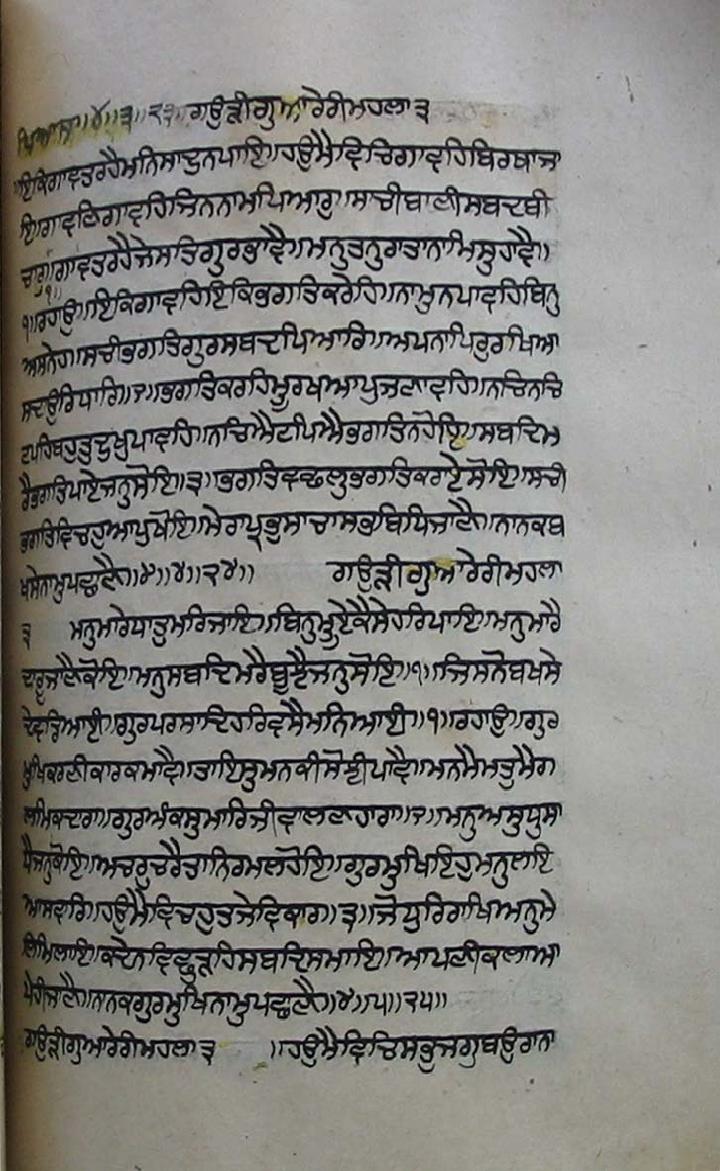 ਪਿਆਸਾ॥੪॥੩॥੨੩॥ਗਉੜੀਗੁਆਰੇਰੀਮਹਲਾ੩
॥ਇਕਿਗਾਵਤਰਹੈਮਨਿਸਾਦੁਨਪਾਇ॥ਹਉਮੈਵਿਚਿਗਾਵਹਿਬਿਰਥਾਜਾ
ਇ॥ਗਾਵਣਿਗਾਵਹਿਜਿਨਨਾਮਪਿਆਰੁ॥ਸਾਚੀਬਾਣੀਸਬਦਬੀ
ਚਾਰੁ॥੧॥ਗਾਵਤਰਹੈਜੇਸਤਿਗੁਰਭਾਵੈ॥ਮਨੁਤਨੁਰਾਤਾਨਾਮਿਸੁਹਾਵੈ॥
੧॥ਰਹਾਉ॥ਇਕਿਗਾਵਹਿਇਕਿਭਗਤਿਕਰੇਹਿ॥ਨਾਮੁਨਪਾਵਹਿਬਿਨੁ
ਅਸਨੇਹ॥ਸਚੀਭਗਤਿਗੁਰਸਬਦਪਿਆਰਿ॥ਅਪਨਾਪਿਰੁਰਖਿਆ
ਸਦਾਉਰਿਧਾਰਿ॥੨॥ਭਗਤਿਕਰਹਿਮੂਰਖਆਪੁਜਣਾਵਹਿ॥ਨਚਿਨਚਿ
ਟਪਹਿਬਹੁਤੁਦੁਖੁਪਾਵਹਿ॥ਨਚਿਐਟਪਿਐਭਗਤਿਨਹੋਇ॥ਸਬਦਿਮ
ਰੈਭਗਤਿਪਾਏਜਨੁਸੋਇ॥੩॥ਭਗਤਿਵਛਲੁਭਗਤਿਕਰਾਏਸੋਇ॥ਸਚੀ
ਭਗਤਿਵਿਚਹੁਆਪੁਖੋਇ॥ਮੇਰਾਪ੍ਰਭੁਸਾਚਾਸਭਬਿਧਿਜਾਣੈ॥ਨਾਨਕਬ
ਖਸੇਨਾਮੁਪਛਾਣੈ॥੪॥੪॥੨੪॥ ਗਉੜੀਗੁਆਰੇਰੀਮਹਲਾ
੩ ਮਨੁਮਾਰੇਧਾਤੁਮਰਿਜਾਇ॥ਬਿਨੁਮੁਏਕੈਸੇਹਰਿਪਾਇ॥ਮਨੁਮਾਰੈ
ਦਾਰੂਜਾਣੈਕੋਇ॥ਮਨੁਸਬਦਿਮਰੈਬੂਝੈਜਨੁਸੋਇ॥੧॥ਜਿਸਨੋਬਖਸੇ
ਦੇਵਡਿਆਈ॥ਗੁਰਪਰਸਾਦਿਹਰਿਵਸੈਮਨਿਆਈ॥੧॥ਰਹਾਉ॥ਗੁਰ
ਮੁਖਿਕਰਣੀਕਾਰਕਮਾਵੈ॥ਤਾਇਸੁਮਨਕੀਸੋਝੀਪਾਵੈ॥ਮਨਮੈਮਤੁਮੈਗ
ਲਮਿਕਦਾਰਾ॥ਗੁਰਅੰਕਸੁਮਾਰਿਜੀਵਾਲਣਹਾਰਾ॥੨॥ਮਨੁਅਸਾਧੁਸਾ
ਧੈਜਨੁਕੋਇ॥ਅਚਰੁਚਰੈਤਾਨਿਰਮਲਹੋਇ॥ਗੁਰਮੁਖਿਇਹੁਮਨੁਲਇ
ਆਸਵਾਰਿ॥ਹਉਮੈਵਿਚਹੁਤਜੇਵਿਕਾਰ॥੩॥ਜੋਧੁਰਿਰਾਖਿਅਨੁਮੇ
ਲਿਮਿਲਾਇ॥ਕਦੇਨਵਿਛੁੜਹਿਸਬਦਿਸਮਾਇ॥ਆਪਣੀਕਲਾਆ
ਪੇਹੀਜਾਣੈ॥ਨਾਨਕਗੁਰਮੁਖਿਨਾਮੁਪਛਾਣੈ॥੪॥੫॥੨੫॥
ਗਉੜੀਗੁਆਰੇਰੀਮਹਲਾ੩ ॥ਹਉਮੈਵਿਚਿਸਭੁਜਗੁਬਉਰਾਨਾ